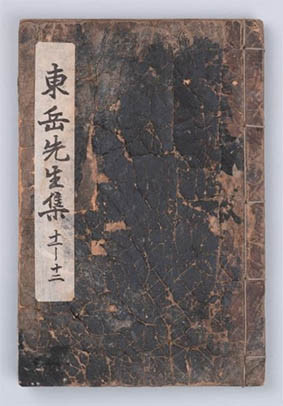 東岳先生集 十一—十二